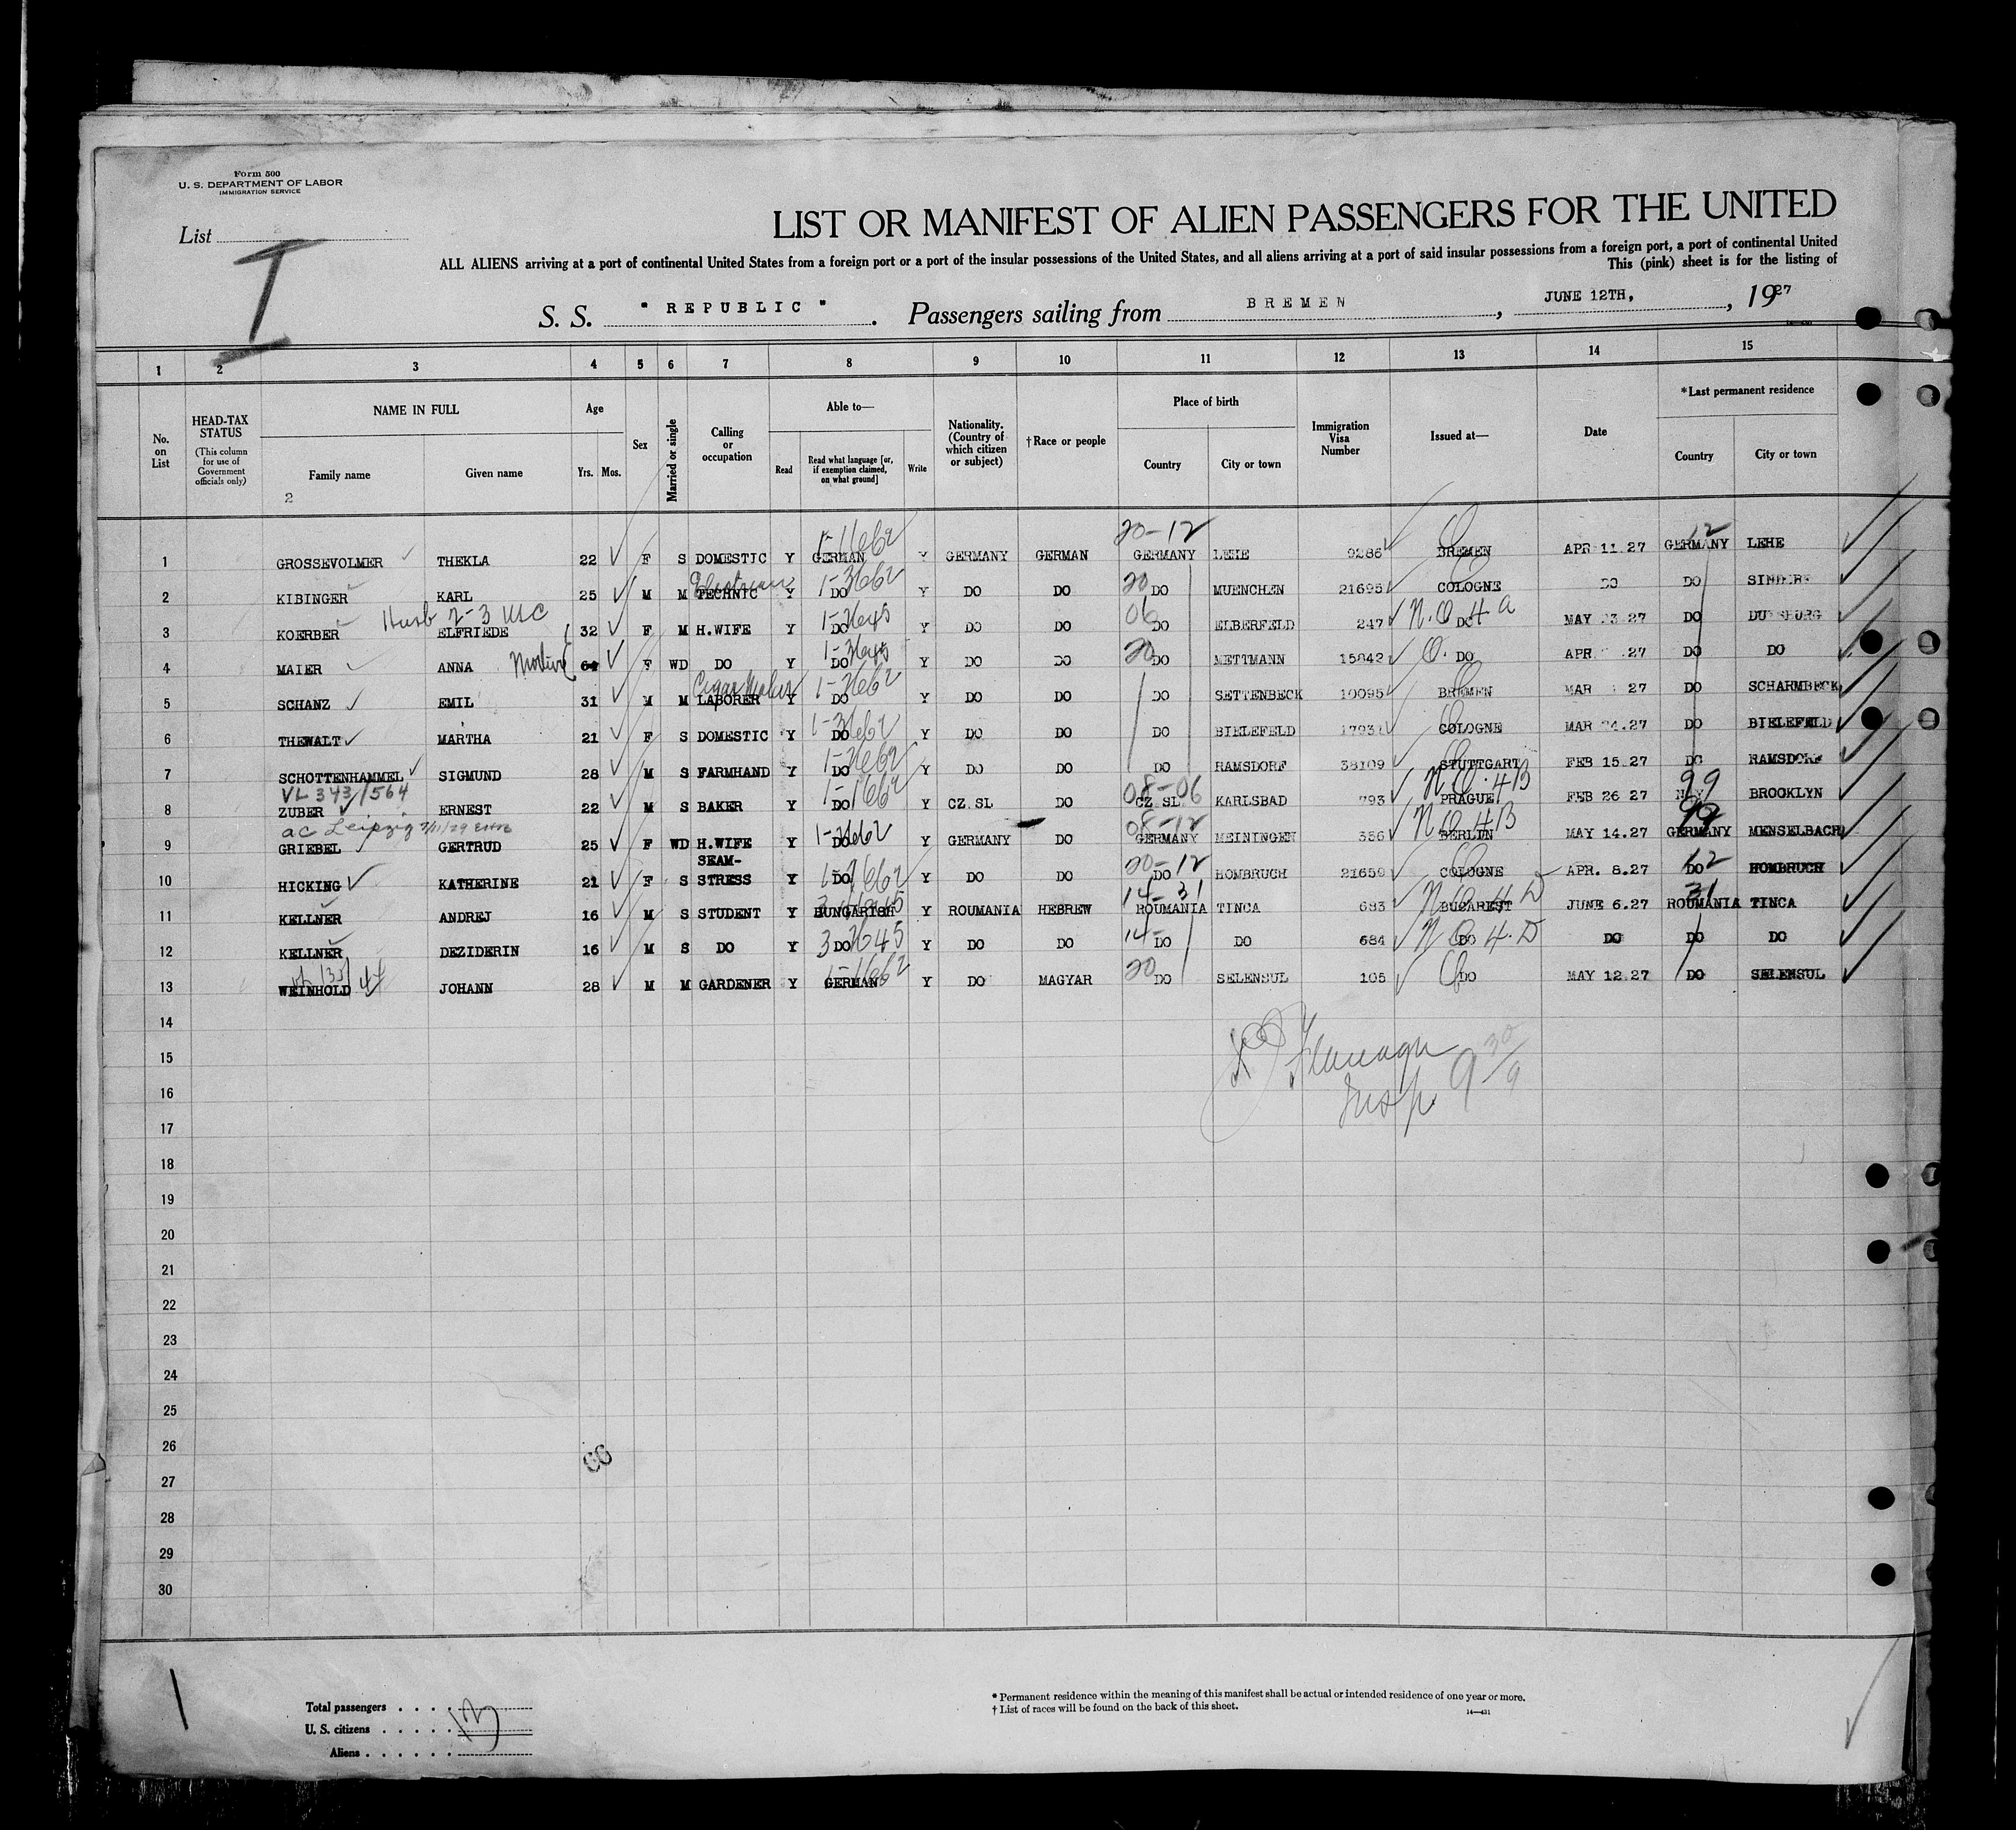 Form 500
U. S. DEPARTMENT OF LABOR
IMMIGRATION SERVICE
List 2
I
LIST OR MANIFEST OF ALIEN PASSENGERS FOR THE UNITED
ALL ALIENS arriving at a port of continental United States from a foreign port or a port of the insular possessions of the United States, and all aliens arriving at a port of said insular possessions from a foreign port, a port of continental United
This (pink) sheet is for the listing of
S. S. "REPUBLIC". Passengers sailing from BREMEN, JUNE 12TH, , 1927
1 2 3 4 5 6 7 8 9 10 11 12 13 14 15
No. on List
HEAD-TAX STATUS (This column for use of Government officials only)
NAME IN FULL
Family name Given name
2
Age Yrs. Mos.
Sex
Married or single
Calling or occupation
Able to—
Read Read what language [or, if exemption claimed, on what ground] Write
Nationality. (Country of which citizen or subject)
† Race or people
Place of birth
Country City or town
Immigration Visa Number
Issued at—
Date
* Last permanent residence
Country City or town
20-12 12
1 GROSSEVOLMER THEKLA 22 F S DOMESTIC Y GERMAN Y GERMANY GERMAN GERMANY LEHE 9286 BREMEN APR 11.27 GERMANY LEHE
2 KIBINGER KARL 25 M M TECHNIC Y DO Y DO DO 20 DO MUENCHEN 21695 COLOGNE DO DO
Husb 7-3 USC
3 KOERBER ELFRIEDE 32 F M H.WIFE Y DO Y DO DO 06 DO ELBERFELD 247 DO MAY 27 DO DUISBURG
4 MAIER ANNA 64 F WD DO Y DO Y DO DO 20 DO METTMANN 15842 DO APR 27 DO DO
Cigar Maker
5 SCHANZ EMIL 31 M M LABORER Y DO Y DO DO DO SETTENBECK 10095 BREMEN MAR 27 DO SCHARMBECK
6 THEWALT MARTHA 21 F S DOMESTIC Y DO Y DO DO DO BIELEFELD COLOGNE MAR 27 DO BIELEFELD
7 SCHOTTENHAMMEL SIGMUND 28 M S FARMHAND Y DO Y DO DO DO RAMSDORF 38109 STUTTGART FEB 15.27 DO RAMSDORF
VL 343/564 08-06 99
8 ZUBER ERNEST 22 M S BAKER Y DO Y CZ.SL DO CZ.SL. KARLSBAD 793 PRAGUE FEB 26 27 BROOKLYN
ac Leipzig 08-12
9 GRIEBEL GERTRUD 25 F WD H.WIFE Y DO Y GERMANY DO GERMANY MEININGEN 356 BERLIN MAY 14.27 GERMANY MENSELBACH
20-12 12
10 HICKING KATHERINE 21 F S SEAM-STRESS Y DO Y DO DO DO HOMBRUCH 21659 COLOGNE APR. 8.27 DO HOMBRUCH
14-31 31
11 KELLNER ANDREJ 16 M S STUDENT Y HUNGARISH Y ROUMANIA HEBREW ROUMANIA TINCA 683 BUCAREST JUNE 6.27 ROUMANIA TINCA
12 KELLNER DEZIDERIN 16 M S DO Y DO Y DO DO 14- DO DO 684 DO DO DO DO
13 WEINHOLD JOHANN 28 M M GARDENER Y GERMAN Y DO MAGYAR 20 DO SELENSUL 105 DO MAY 12.27 DO SELENSUL
14
Flanagan
15
Insp.
16
17
18
19
20
21
22
23
24
25
26
27
28
29
30
Total passengers . . . .
U. S. citizens . . . . . 13
Aliens . . . . . .
* Permanent residence within the meaning of this manifest shall be actual or intended residence of one year or more.
† List of races will be found on the back of this sheet.
14—431